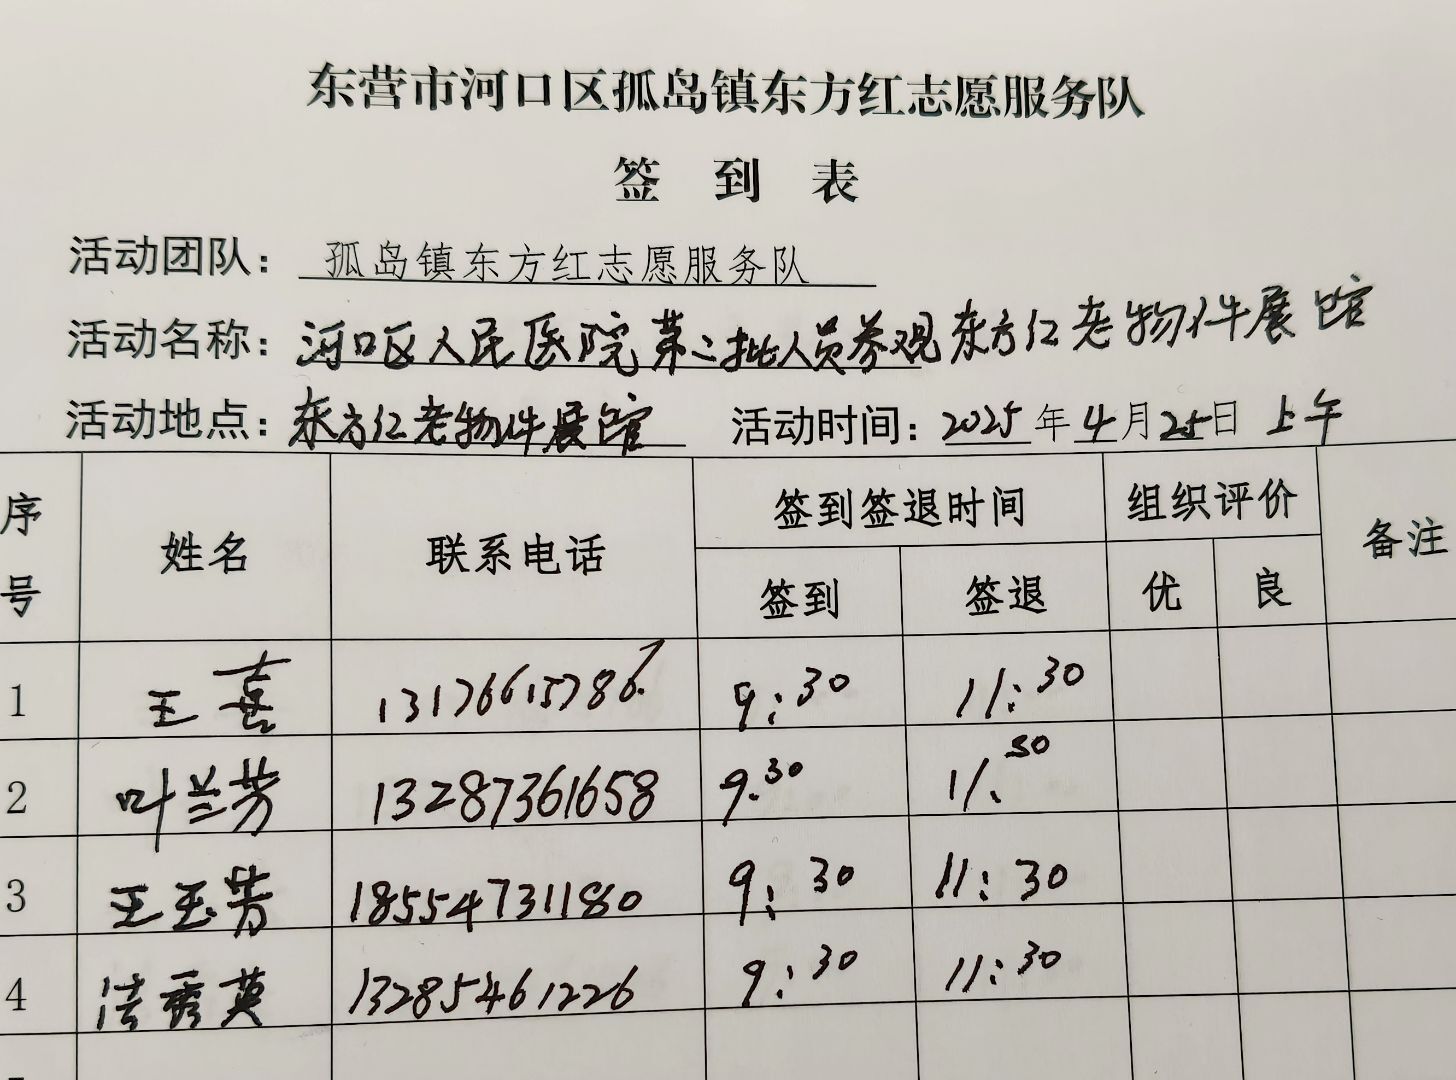 东营市河口区孤岛镇东方红志愿服务队
签 到 表
活动团队： 孤岛镇东方红志愿服务队
活动名称：河口区人民医院第二批人员参观东方红老物件展馆
活动地点：东方红老物件展馆 活动时间：2025年4月25日 上午
序号 姓名 联系电话 签到签退时间 组织评价 备注
签到 签退 优 良
1 王喜 9:30 11:30
2 叶兰芳 13287361658 9.30 11.30
3 王玉芳 18554731180 9:30 11:30
4 秀英 13285461226 9:30 11:30